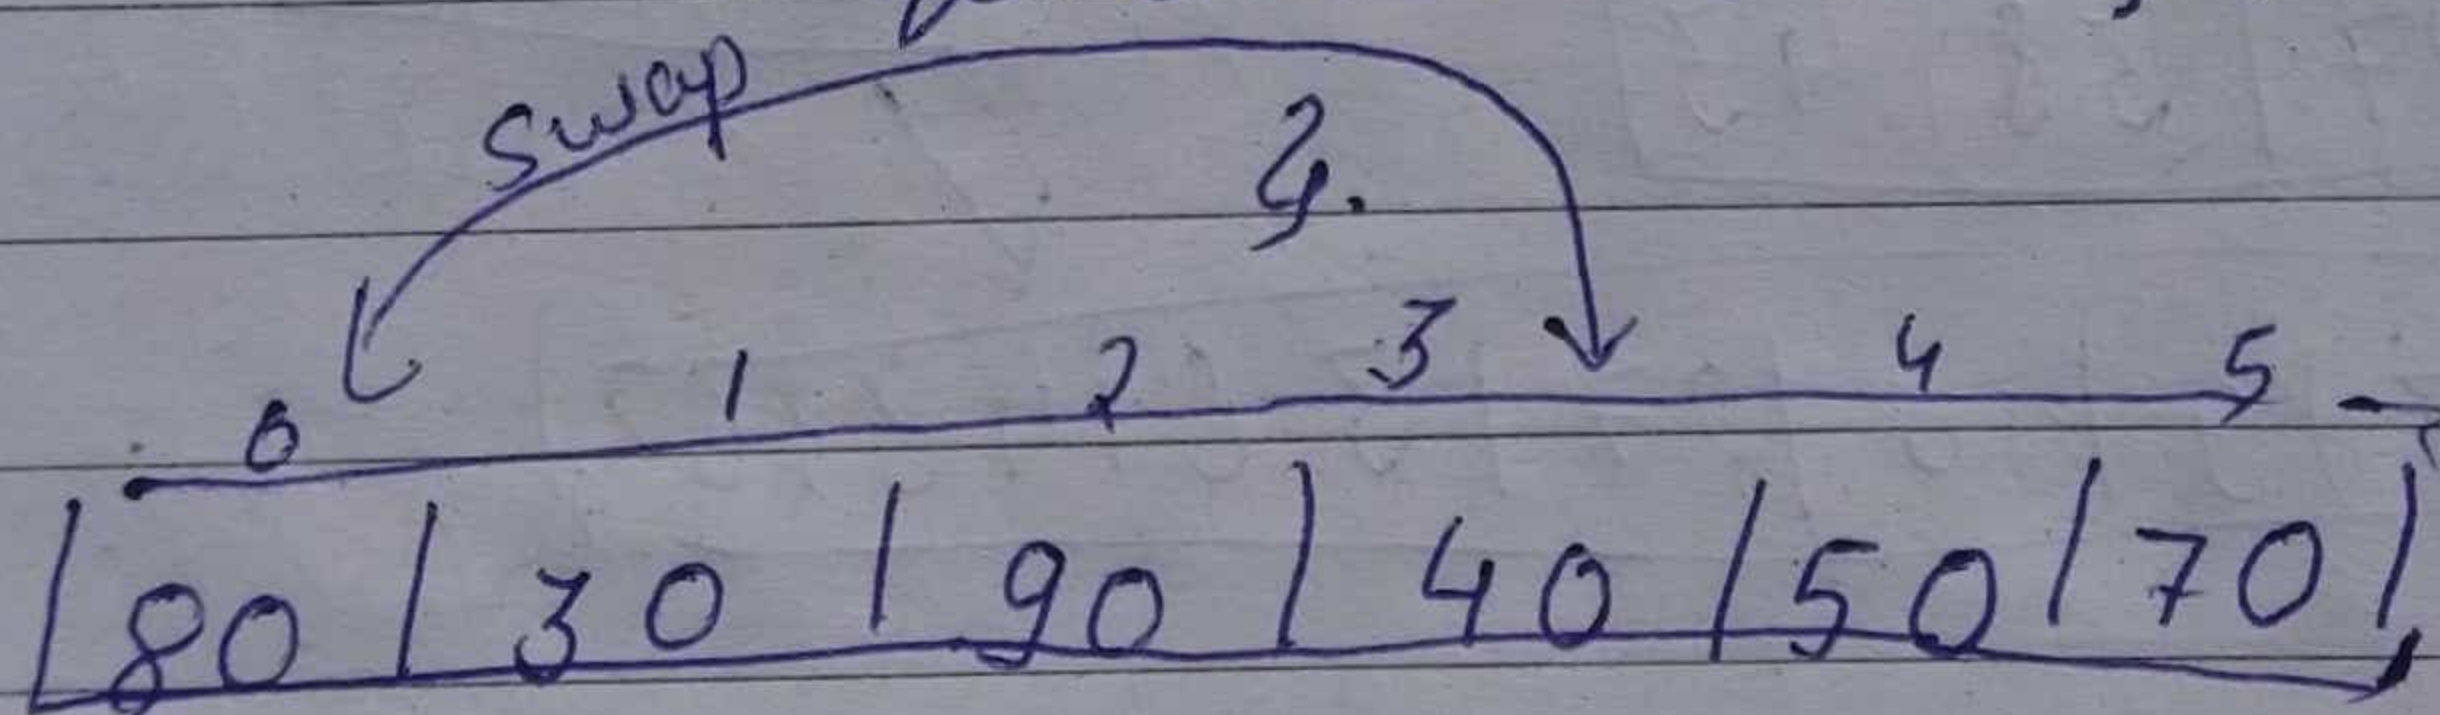 Swap
}.
0 1 2 3 4 5
|80|30|90|40|50|70|